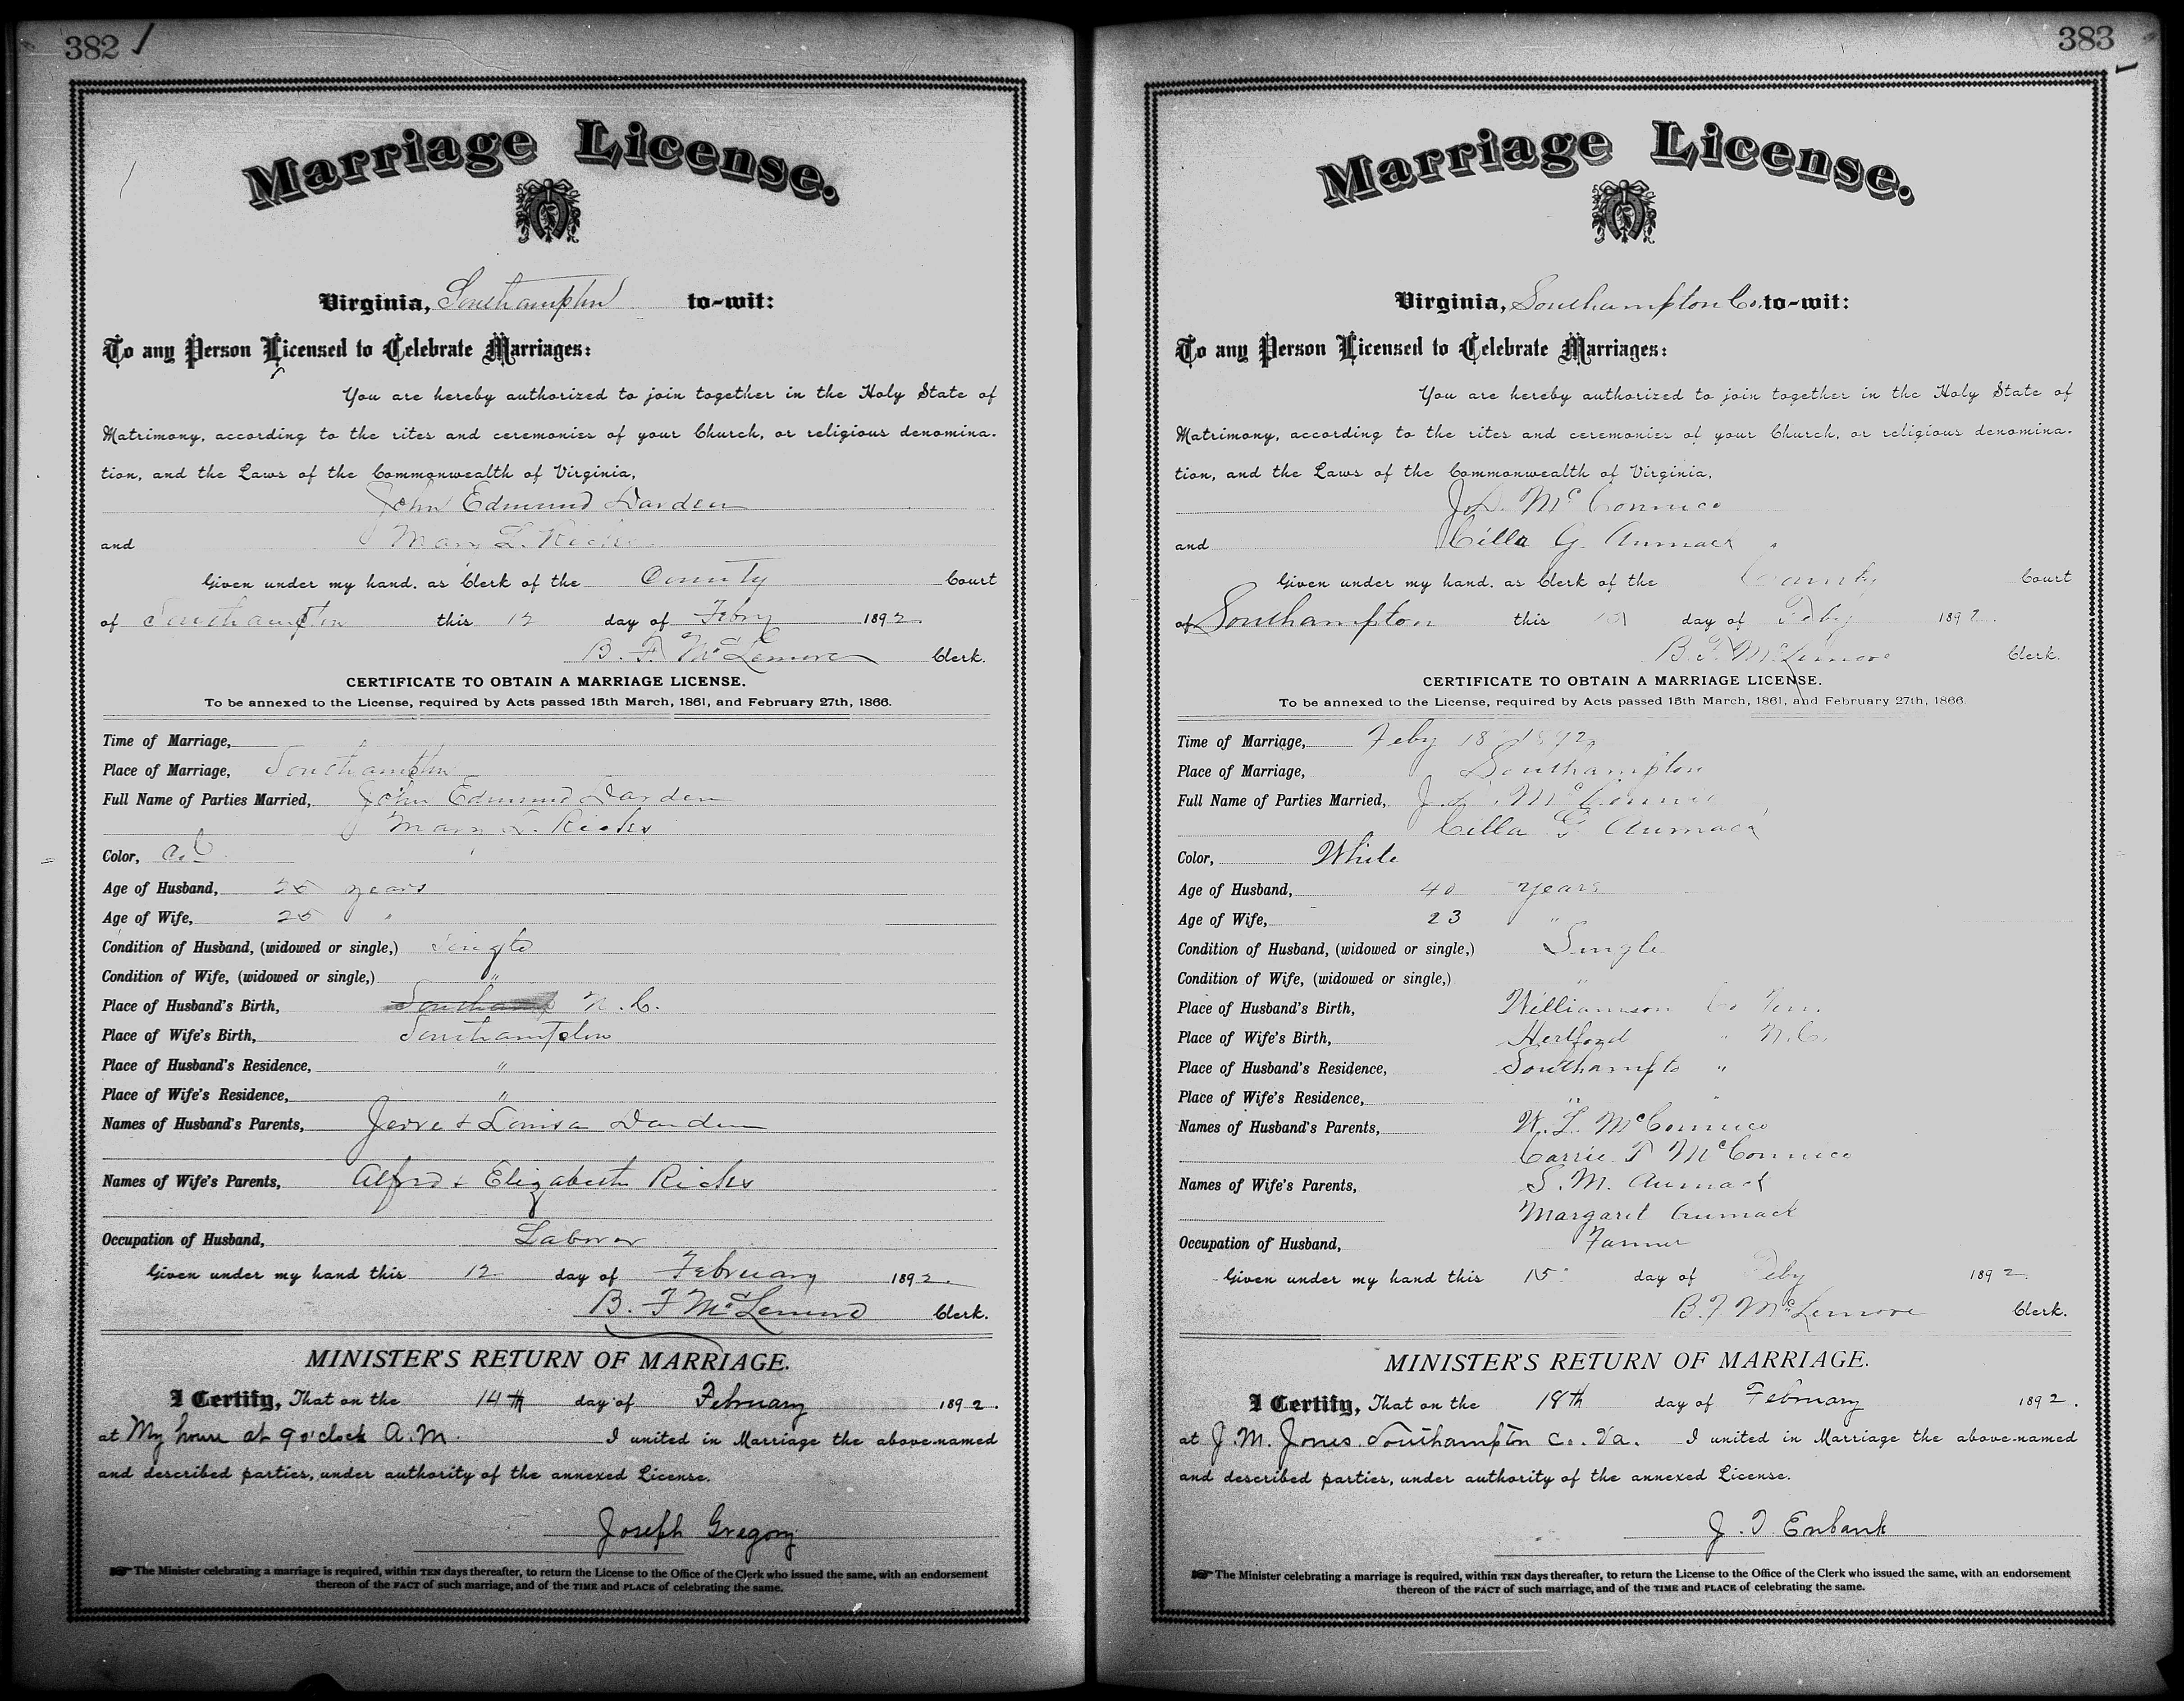 382
Marriage License.
Virginia, Southampton to-wit:
To any Person Licensed to Celebrate Marriages:
You are hereby authorized to join together in the Holy State of
Matrimony, according to the rites and ceremonies of your Church, or religious denomina-
tion, and the Laws of the Commonwealth of Virginia,
John Edmund Darden
and Mary L. Ricks
Given under my hand, as Clerk of the County Court
of Southampton this 12 day of Febry 1892.
B. F. McLemore Clerk.
CERTIFICATE TO OBTAIN A MARRIAGE LICENSE.
To be annexed to the License, required by Acts passed 15th March, 1861, and February 27th, 1866.
Time of Marriage,
Place of Marriage, Southampton
Full Name of Parties Married, John Edmund Darden
Mary L. Ricks
Color, Col
Age of Husband, years
Age of Wife, 25 "
Condition of Husband, (widowed or single,) Single
Condition of Wife, (widowed or single,) "
Place of Husband's Birth, N.C.
Place of Wife's Birth, Southampton
Place of Husband's Residence, "
Place of Wife's Residence, "
Names of Husband's Parents, & Louisa Darden
Names of Wife's Parents, Alfred & Elizabeth Ricks
Occupation of Husband, Laborer
Given under my hand this 12 day of February 1892.
B. F McLemore Clerk.
MINISTER'S RETURN OF MARRIAGE.
I Certify, That on the 14th day of February 1892.
at My house at 9 o'clock A.M. I united in Marriage the above-named
and described parties, under authority of the annexed License.
Joseph Gregory
The Minister celebrating a marriage is required, within TEN days thereafter, to return the License to the Office of the Clerk who issued the same, with an endorsement
thereon of the FACT of such marriage, and of the TIME and PLACE of celebrating the same.
383
Marriage License.
Virginia, Southampton Co. to-wit:
To any Person Licensed to Celebrate Marriages:
You are hereby authorized to join together in the Holy State of
Matrimony, according to the rites and ceremonies of your Church, or religious denomina-
tion, and the Laws of the Commonwealth of Virginia,
J. McConnico
and Cilla G. Aumack
Given under my hand, as Clerk of the County Court
of Southampton this day of Feby 1892.
B. F. McLemore Clerk.
CERTIFICATE TO OBTAIN A MARRIAGE LICENSE.
To be annexed to the License, required by Acts passed 15th March, 1861, and February 27th, 1866.
Time of Marriage, Feby 18 1892
Place of Marriage, Southampton
Full Name of Parties Married, J. McConnico
Cilla G Aumack
Color, White
Age of Husband, 40 years
Age of Wife, 23 "
Condition of Husband, (widowed or single,) Single
Condition of Wife, (widowed or single,) "
Place of Husband's Birth, Williamson Co Tenn.
Place of Wife's Birth, Hertford " N.C.
Place of Husband's Residence, Southampto "
Place of Wife's Residence, " "
Names of Husband's Parents, W. L. McConnico
Carrie McConnico
Names of Wife's Parents, S. M. Aumack
Margaret Aumack
Occupation of Husband, Farmer
Given under my hand this 15 day of Feby 1892.
B. F McLemore Clerk.
MINISTER'S RETURN OF MARRIAGE.
I Certify, That on the 18th day of February 1892.
at J. M. Jones Southampton Co. Va. I united in Marriage the above-named
and described parties, under authority of the annexed License.
J. T. Eubank
The Minister celebrating a marriage is required, within TEN days thereafter, to return the License to the Office of the Clerk who issued the same, with an endorsement
thereon of the FACT of such marriage, and of the TIME and PLACE of celebrating the same.